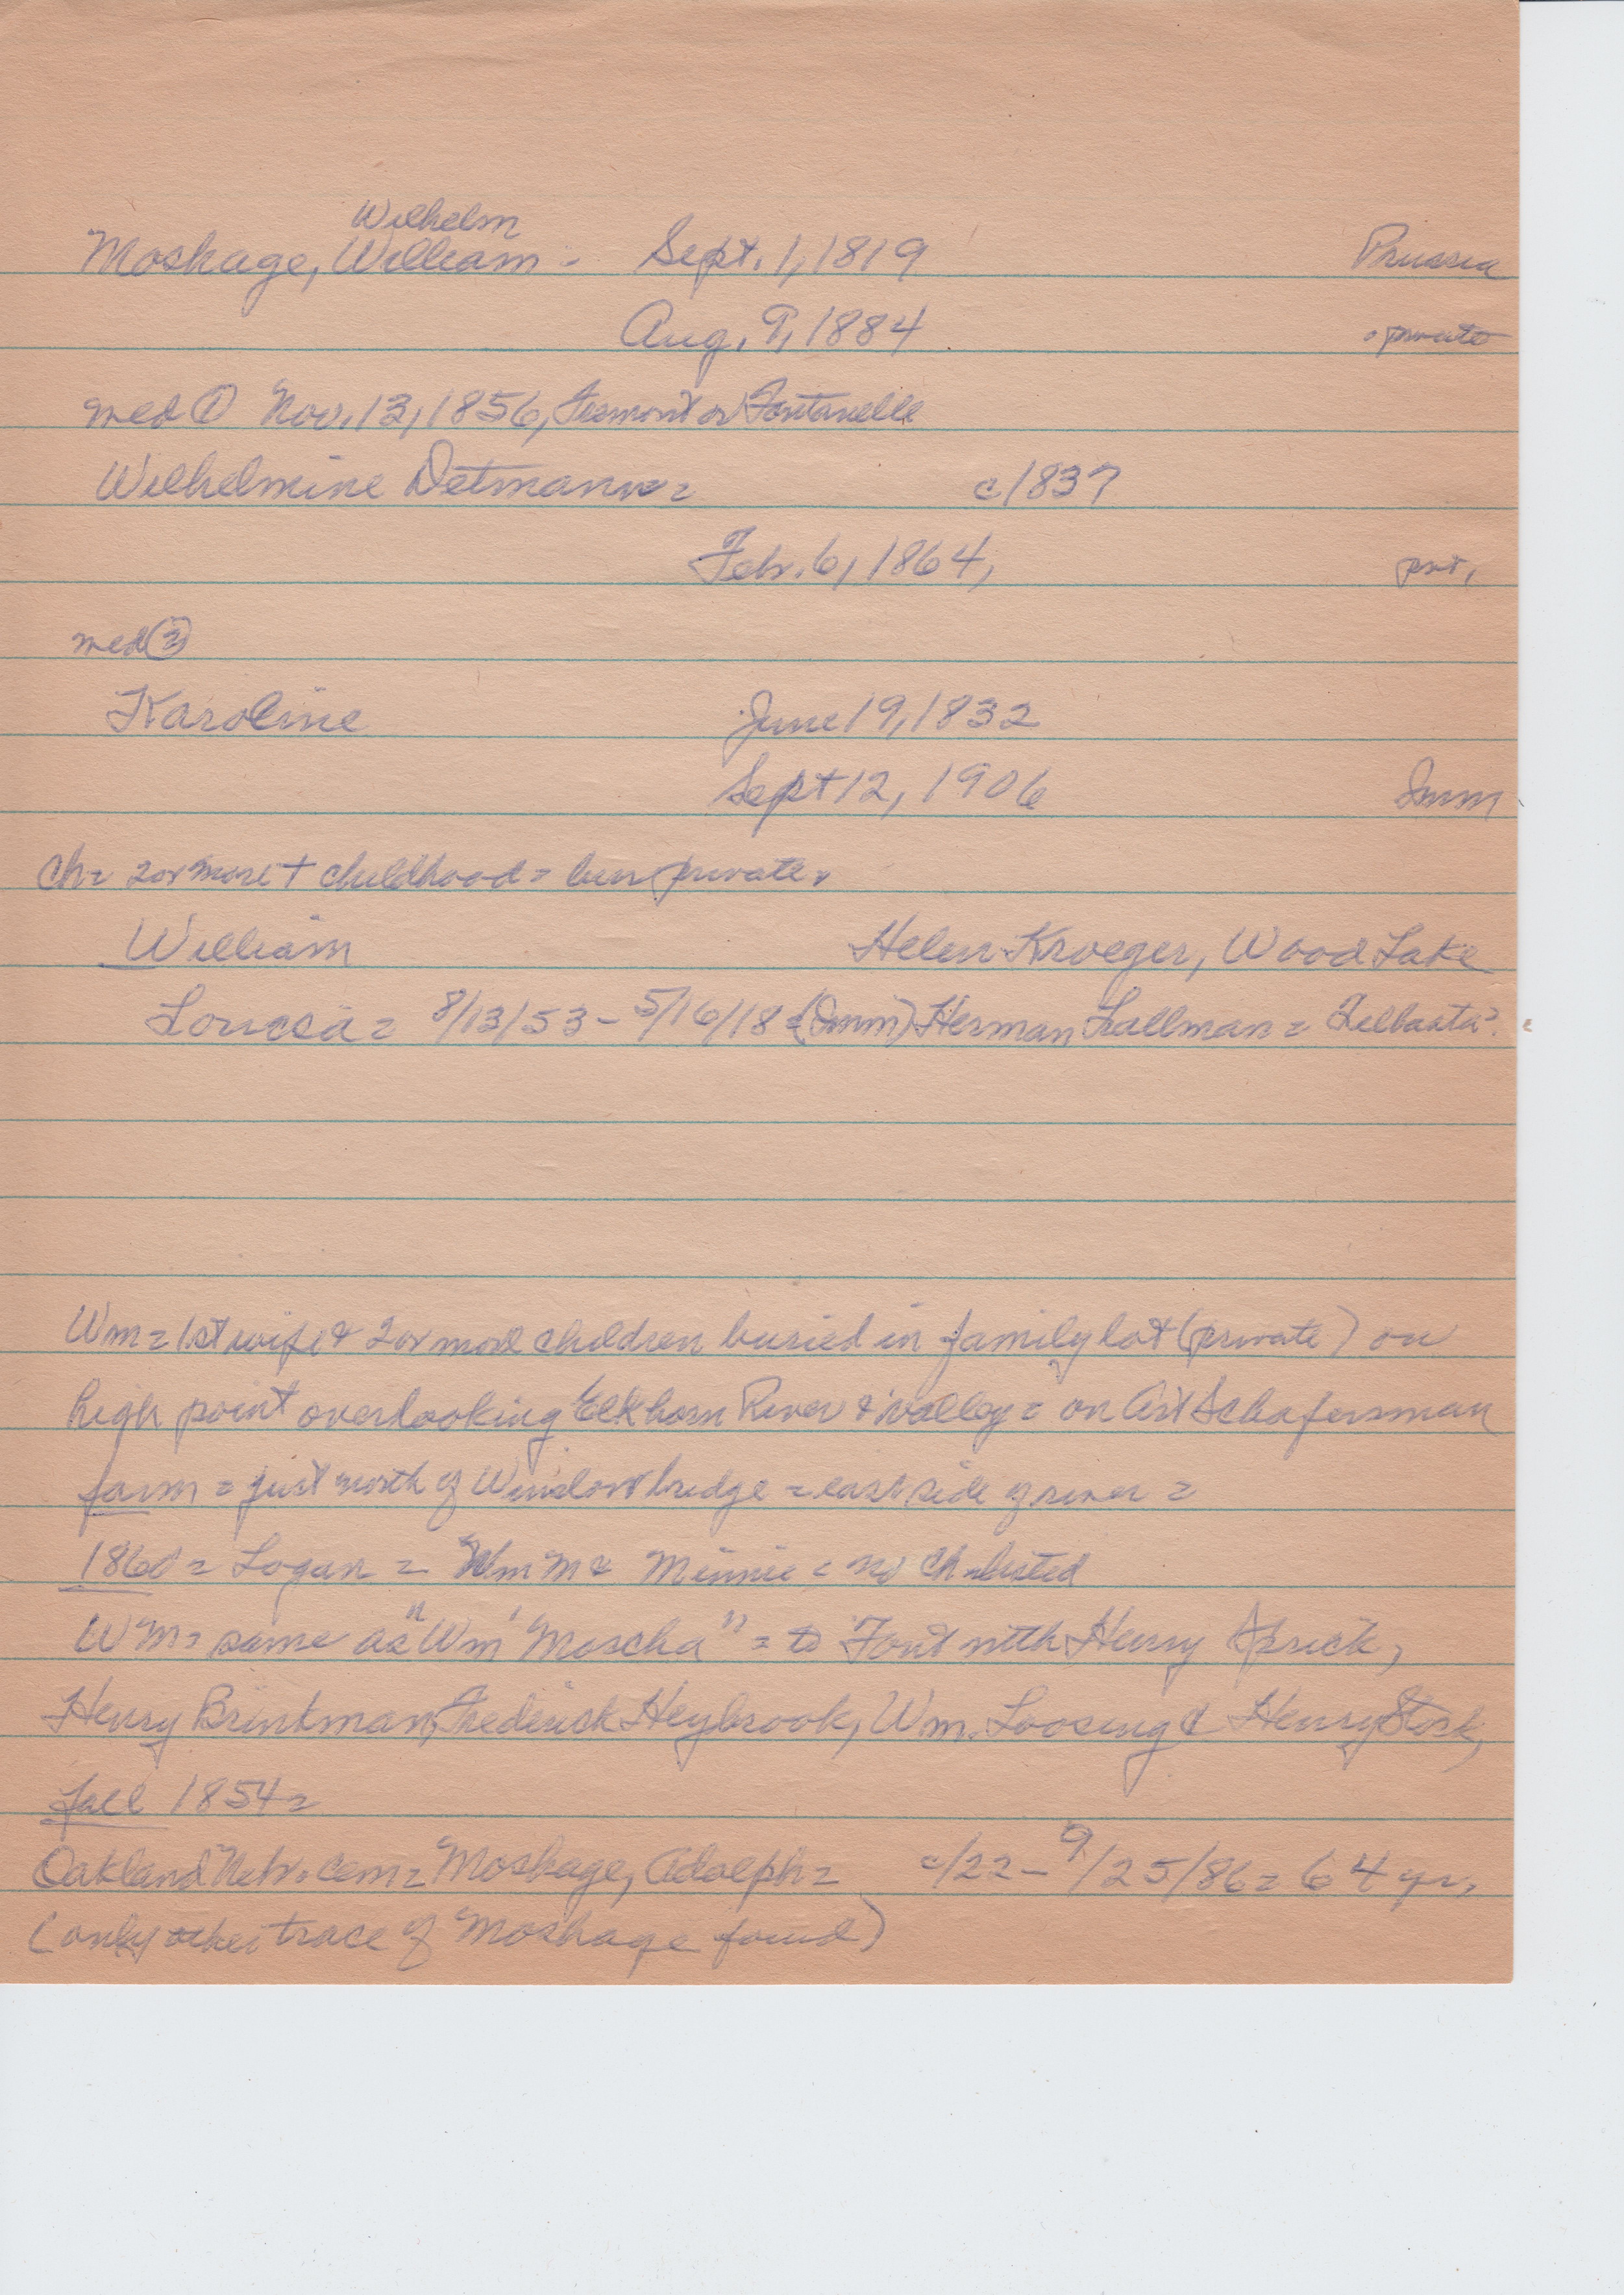 Wilhelm
Moshage, William - Sept. 1, 1819 Prussia
Aug. 9, 1884 private
med ① Nov. 13, 1856, Fremont or Fontanelle
Wilhelmine Detmann = c/1837
Febr. 6, 1864, prvt,
med ②
Karoline June 19, 1832
Sept 12, 1906 Imm
Ch = 2 or more + childhood = bur private.
William Helen Kroeger, Wood Lake
Louisa = 8/13/53 - 5/16/18 = (Imm) Herman Lallman =
Wm = 1st wife & 2 or more children buried in family lot (private) on
high point overlooking Elkhorn River & valley = on Art Schafersman
farm = just north of Winslow bridge = east side of river =
1860 = Logan = Wm M & Minnie = no Ch listed
Wm = same as "Wm Moscha" = to Font with Henry Sprick,
Henry Brinkman, Frederick Heybrook, Wm. Loosing & Henry Stork,
fall 1854 =
Oakland Nebr. Cem = Moshage, Adolph = c/22 - 9/25/86 = 64 yr,
(only other trace of Moshage found)